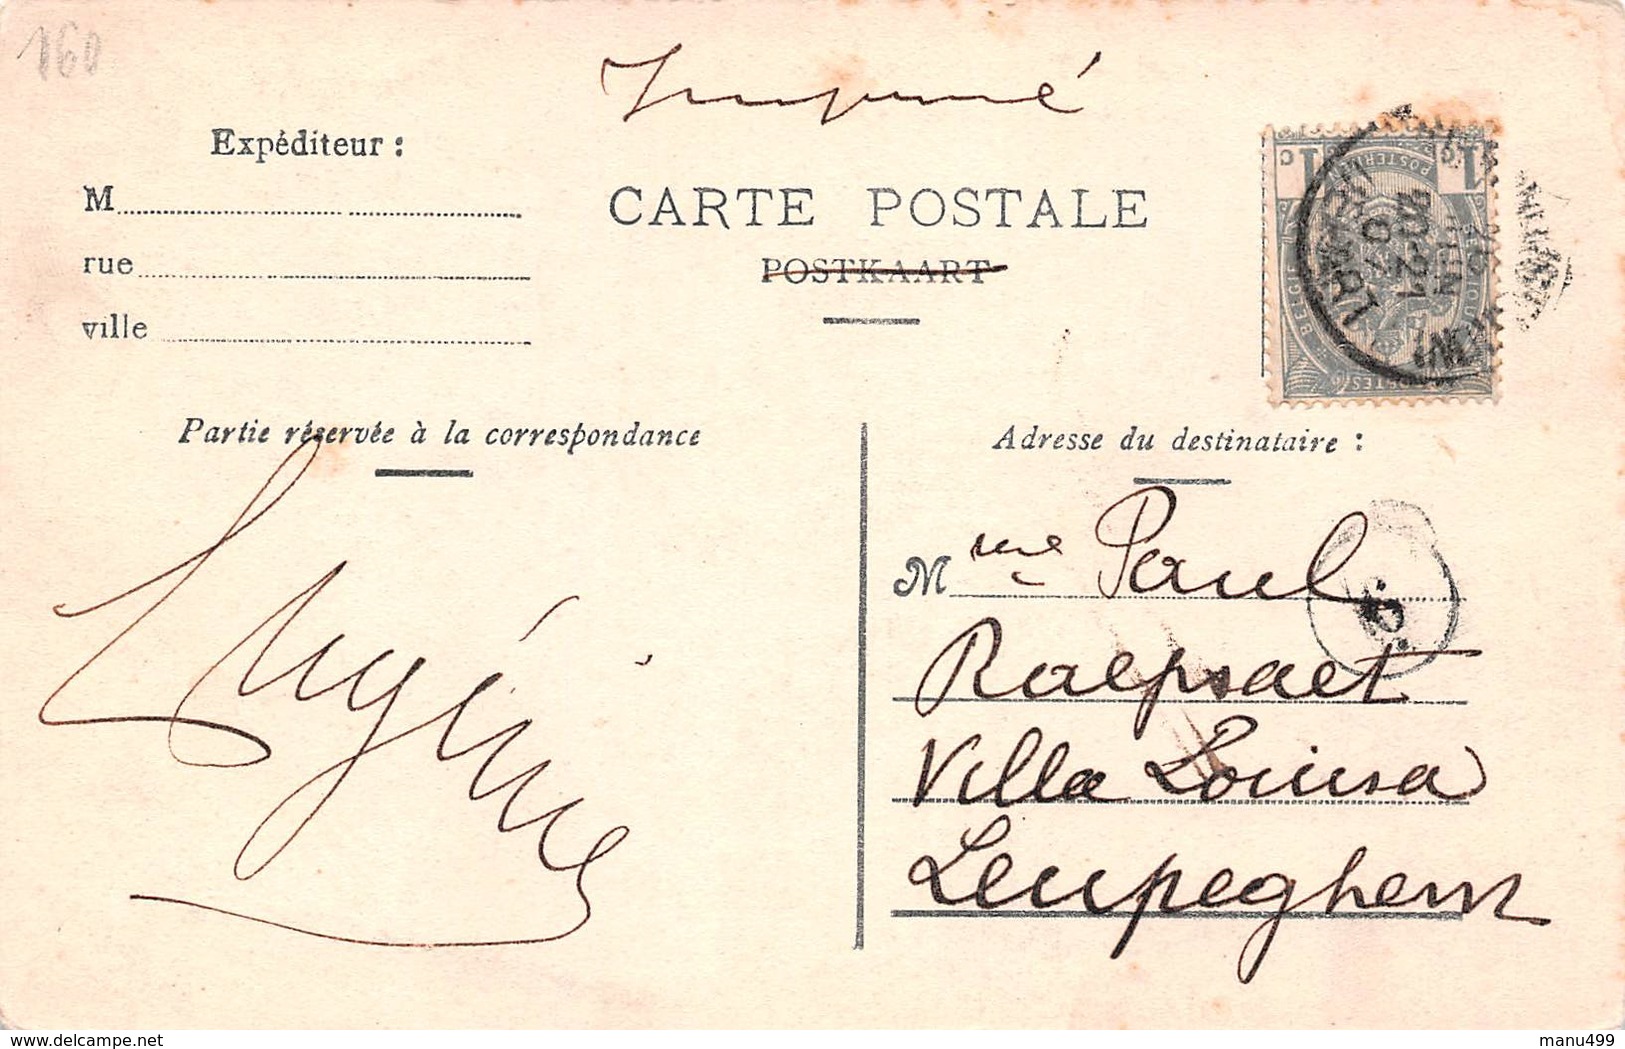 160
Imprimé
Expéditeur :
M
rue
ville
CARTE POSTALE
POSTKAART
1 c 1 c
20-21
JUIN
Partie réservée à la correspondance
Adresse du destinataire :
Eugénie
Mme Paul
Raepsaet
Villa Louisa
Leupeghem
delcampe.net
manu499